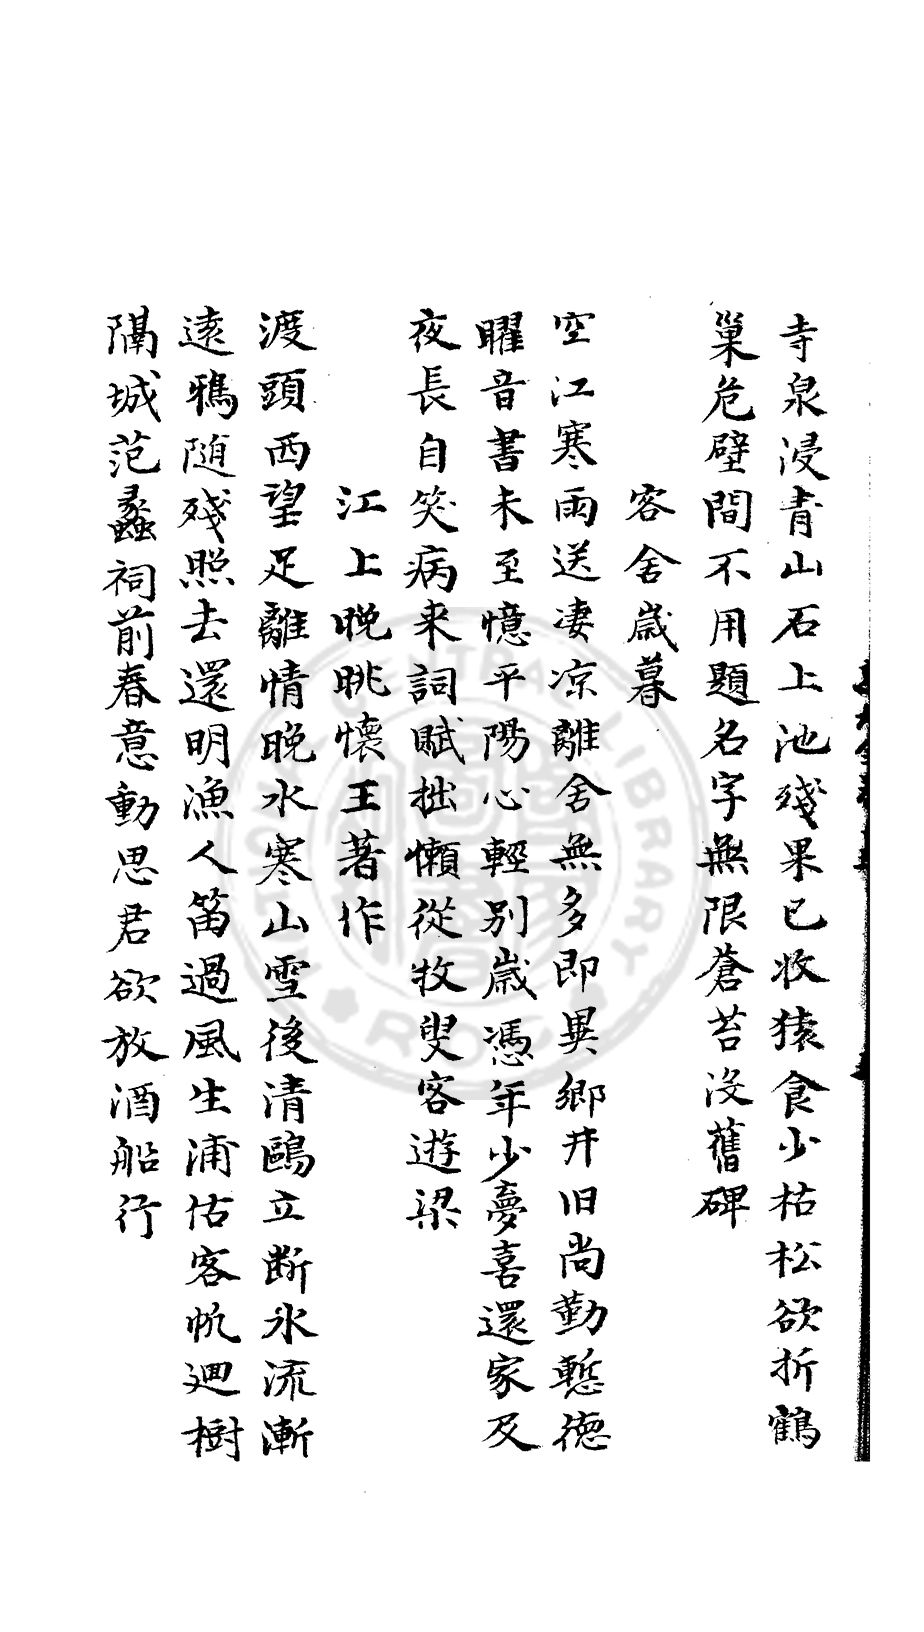 寺泉浸青山石上池殘果已收猿食少枯松欲折鶴
巢危壁間不用題名字無限蒼苔沒舊碑
客舍歲暮
空江寒雨送凄凉離舍無多即異鄉井旧尚勤慙德
曜音書未至憶平陽心輕別歲憑年少夢喜還家及
夜長自笑病来詞賦拙懶從牧叟客遊梁
江上晚眺懷王著作
渡頭西望足離情晚水寒山雪後清鷗立断氷流漸
遠鴉随殘照去還明漁人笛過風生浦估客帆迴樹
隔城范蠡祠前春意動思君欲放酒船行
CENTRAL LIBRARY